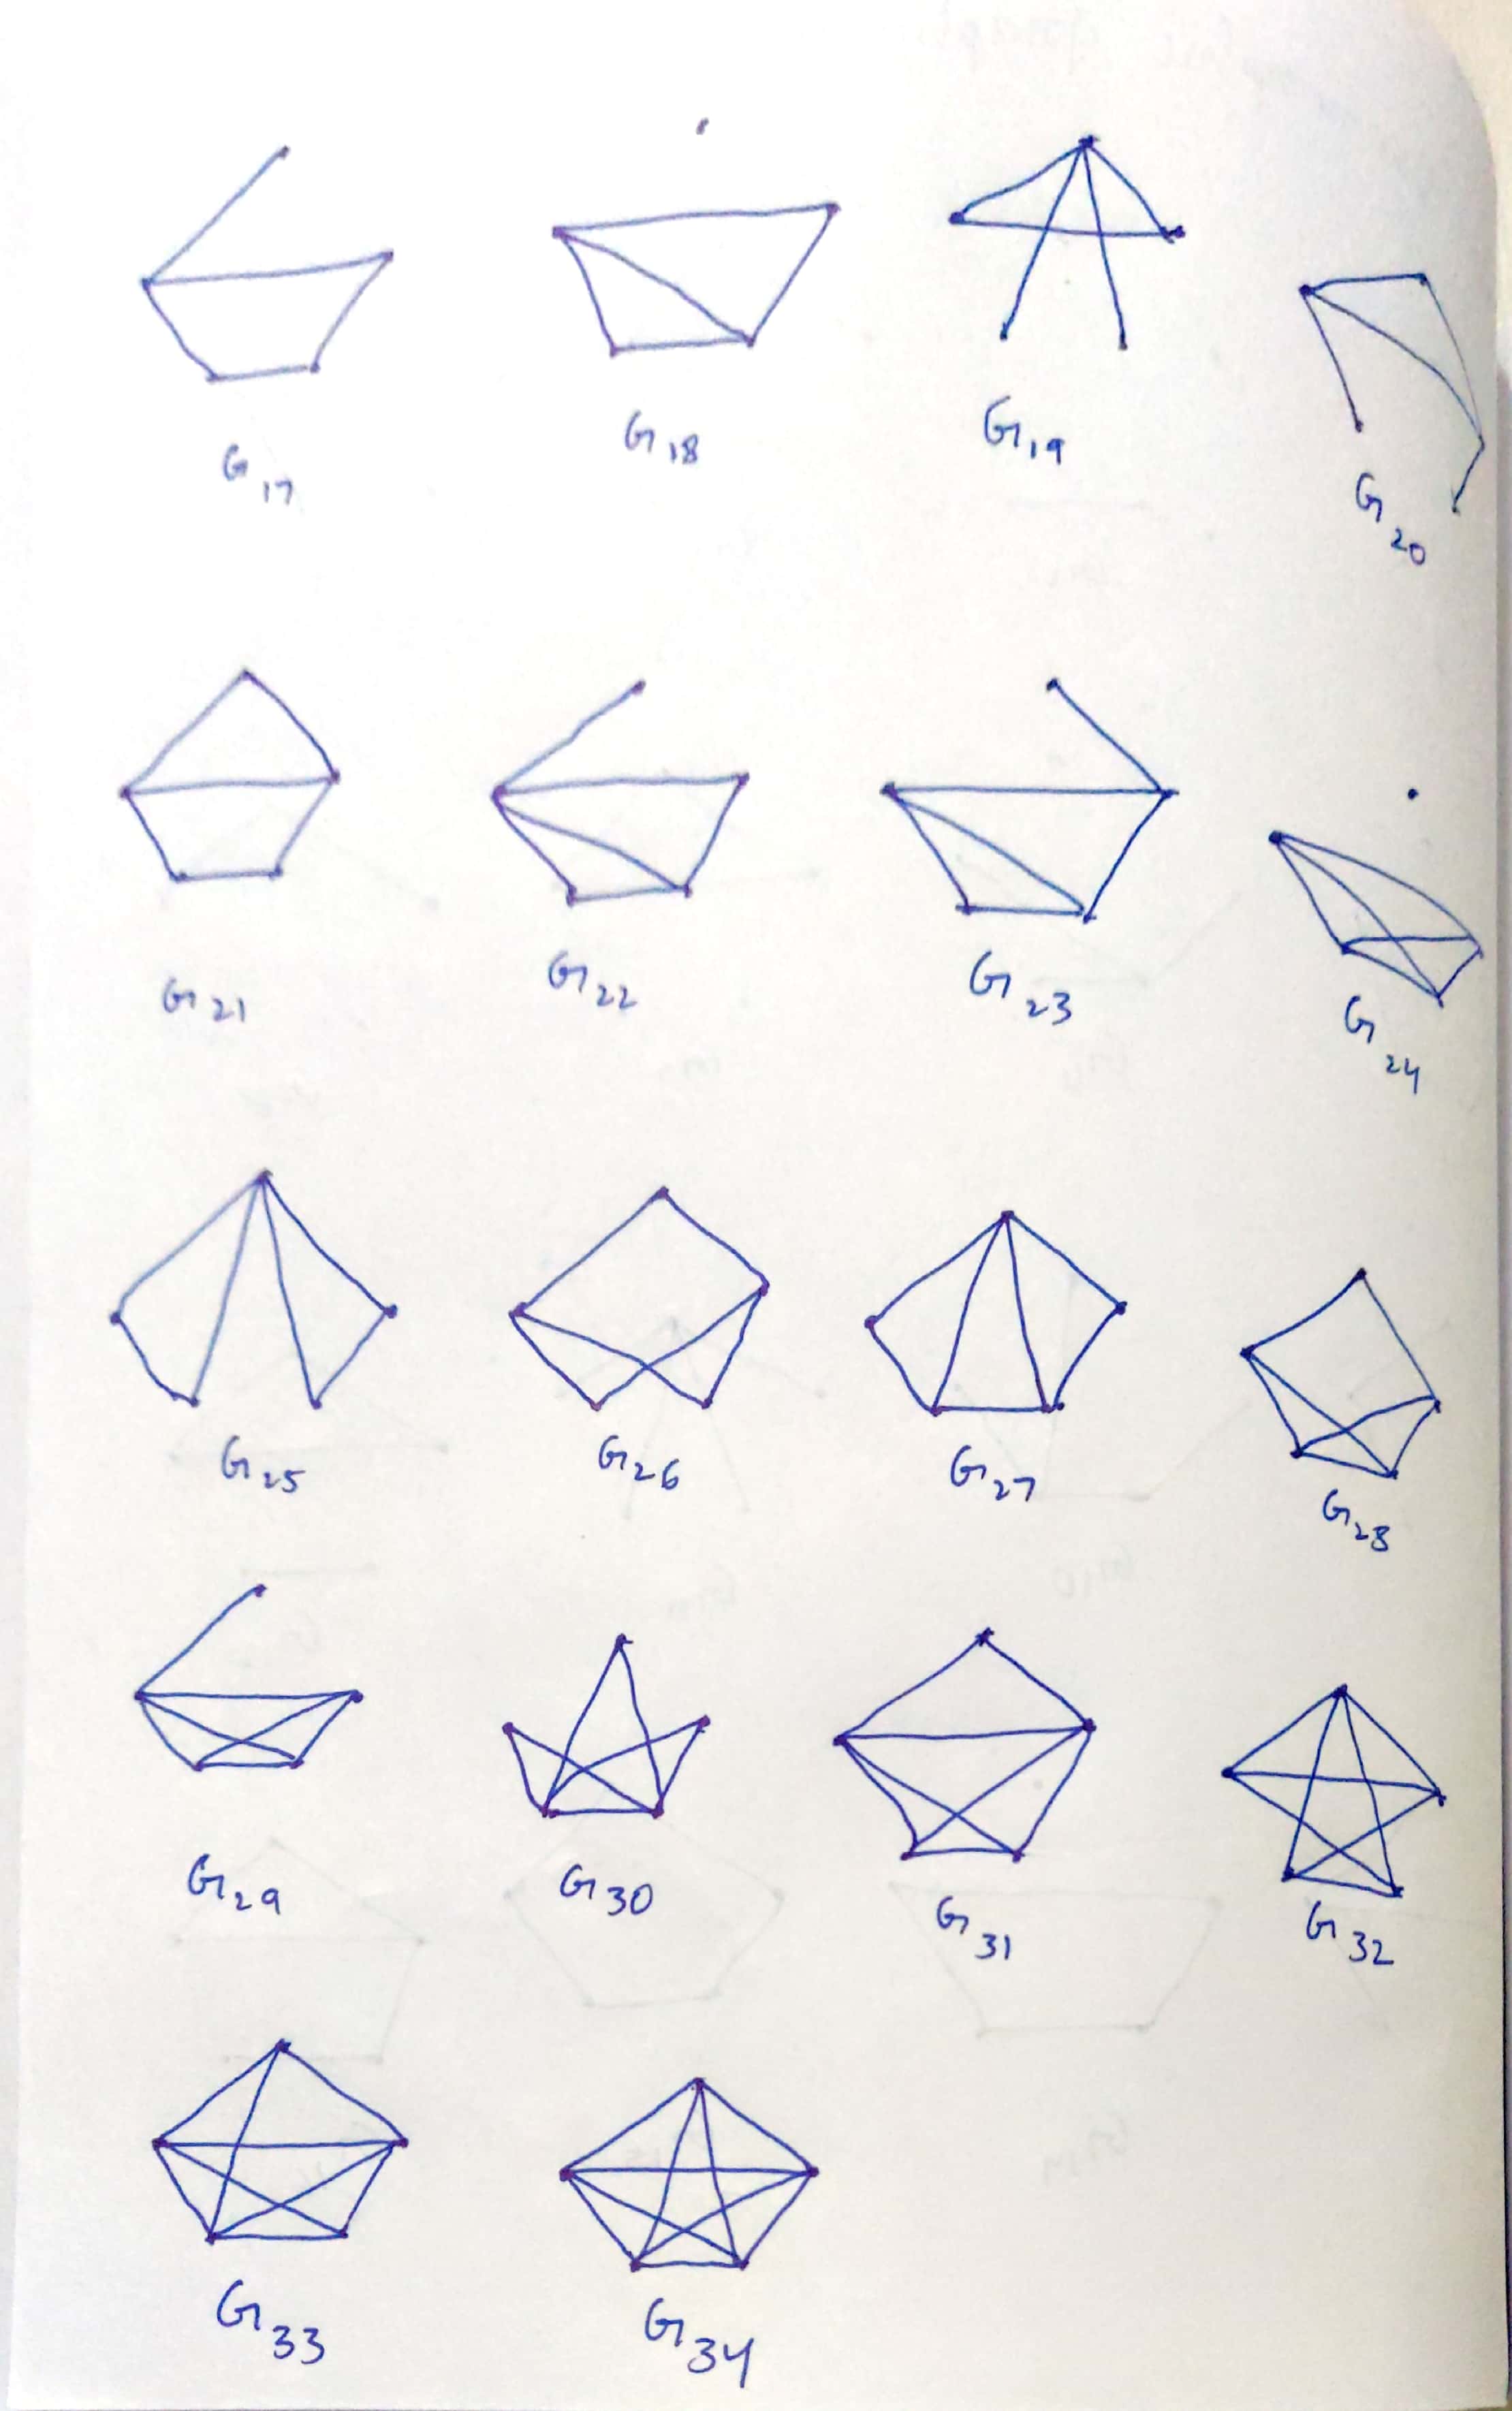 G17 G18 G19 G20
G21 G22 G23 G24
G25 G26 G27 G28
G29 G30 G31 G32
G33 G34